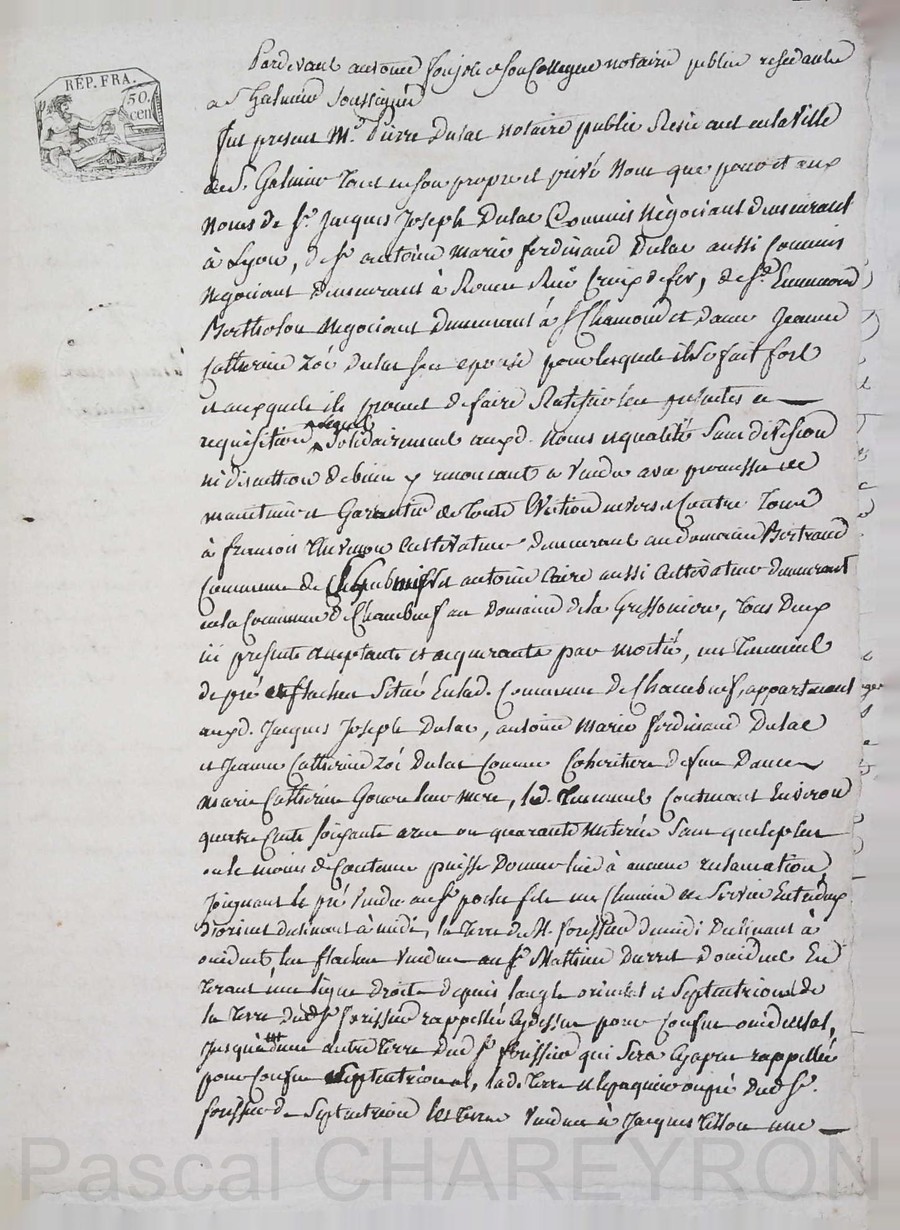 REP. FRA.
50. cen
Pardevant antoine et son Collegue notaire public residants
a St. Galmier soussignés
fut present Me. Pierre Dulac notaire public Residant en la Ville
de St. Galmier tant en son propre et privé Nom que pour et aux
Noms de Sr. Jacques Joseph Dulac Commis Négociant demeurant
à Lyon, de Sr. antoine marie ferdinand Dulac aussi Commis
Negociant Demeurant à Rouen Rue Croix de fer, de Sr.
Bertholon Negociant Demeurant à St. Chamond et dame Jeanne
Catherine Zoé Dulac son epouse pour lesquels il se fait fort
et auxquels il promet de faire Ratifier les presentes a
requisition lequel Solidairement auxd. Noms et qualités Sans division
ni discution de biens y renoncant a vendu avec promesse de
maintenir et Garantir de toute Eviction envers et Contre Tous
à francois Thevenon Cultivateur demeurant au Domaine Bertrand
Commune de et antoine Caire aussi Cultivateur demeurant
en la Commune de Chambœuf au Domaine de la, tous Deux
ici presents acceptants et acquerants par moitié, un Tenement
de pré et flacheu Situé en lad. Commune de Chambœuf, appartenant
auxd. Jacques Joseph Dulac, antoine Marie ferdinand Dulac
et Jeanne Catherine Zoé Dulac Comme Coheritiers de feue Dame
Marie Catherine leur mere, led. Tenement Contenant Environ
quatre Cents soixante ares ou quarante Meterées Sans que le plus
ou le moins de Contenu puisse Donner lieu à aucune reclamation
Joignant le pré Vendu au Sr. fils un Chemin de Service Entredeux
D'orient declinant à midi, la Terre de M. de midi Declinant à
occident, les flacheu Vendues au Sr. Mathieu D'occident En
tirant une ligne droite depuis l'angle oriental et Septentrional de
la Terre dudt. Sr. rappellée Cydessus pour Confin occidental,
Jusqu'à une autre Terre dud. Sr. qui Sera Cyapres rappellée
pour Confin Septentrional, lad. Terre et le ou pré dud. Sr.
de Septentrion les Terres Vendues à Jacques une
Pascal CHAREYRON